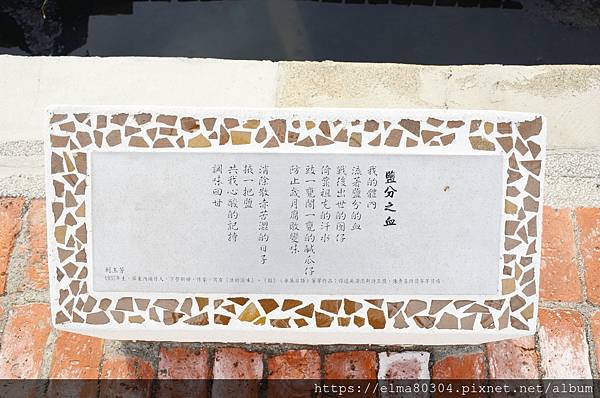 鹽分之血
我的體內
流著鹽分的血
戰後出世的囡仔
倚靠祖先的汗水
豉一甕閣一甕的鹹瓜仔
防止歲月腐敗變味
消除散赤苦澀的日子
摵一把鹽
共我心酸的記持
調味回甘
利玉芳
https://elma80304.pixnet.net/album